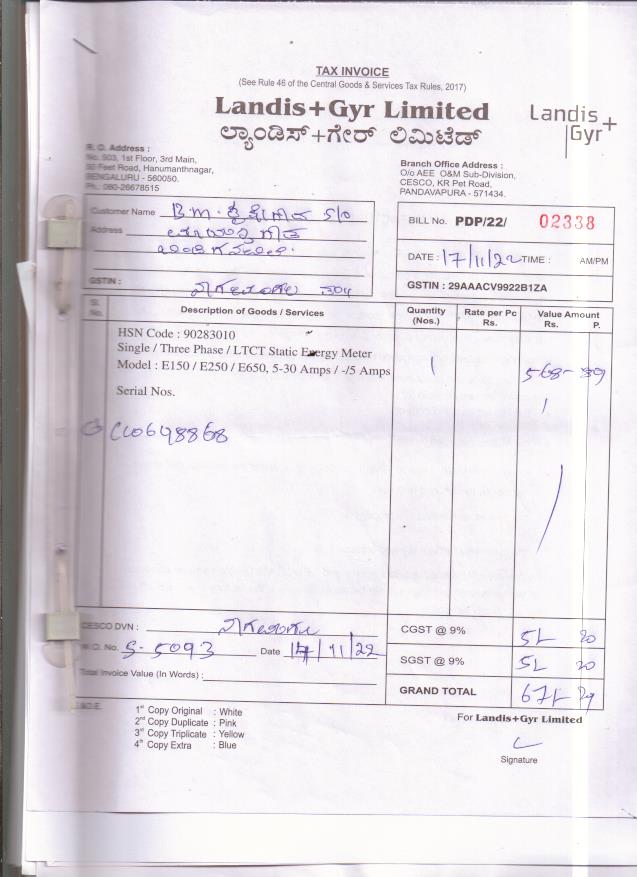 TAX INVOICE
(See Rule 46 of the Central Goods & Services Tax Rules, 2017)
Landis+Gyr Limited
ಲ್ಯಾಂಡಿಸ್+ಗೇರ್ ಲಿಮಿಟೆಡ್
Landis+
Gyr
R. O. Address :
No. 503, 1st Floor, 3rd Main,
Feet Road, Hanumanthnagar,
BENGALURU - 560050.
Ph.: 080-26678515
Branch Office Address :
O/o AEE O&M Sub-Division,
CESCO, KR Pet Road,
PANDAVAPURA - 571434.
Customer Name B.M. S/o
Address
GSTIN :
BILL No. PDP/22/ 02338
DATE : 17/11/22 TIME : AM/PM
GSTIN : 29AAACV9922B1ZA
Sl. No. Description of Goods / Services Quantity (Nos.) Rate per Pc Rs. Value Amount Rs. P.
HSN Code : 90283010
Single / Three Phase / LTCT Static Energy Meter
Model : E150 / E250 / E650, 5-30 Amps / -/5 Amps 1 568-
Serial Nos.
CESCO DVN :
W.O. No. S-5093 Date 14/11/22
Total Invoice Value (In Words) :
CGST @ 9% 51 20
SGST @ 9% 51 20
GRAND TOTAL 671 29
E.& O.E.
1st Copy Original : White
2nd Copy Duplicate : Pink
3rd Copy Triplicate : Yellow
4th Copy Extra : Blue
For Landis+Gyr Limited
Signature